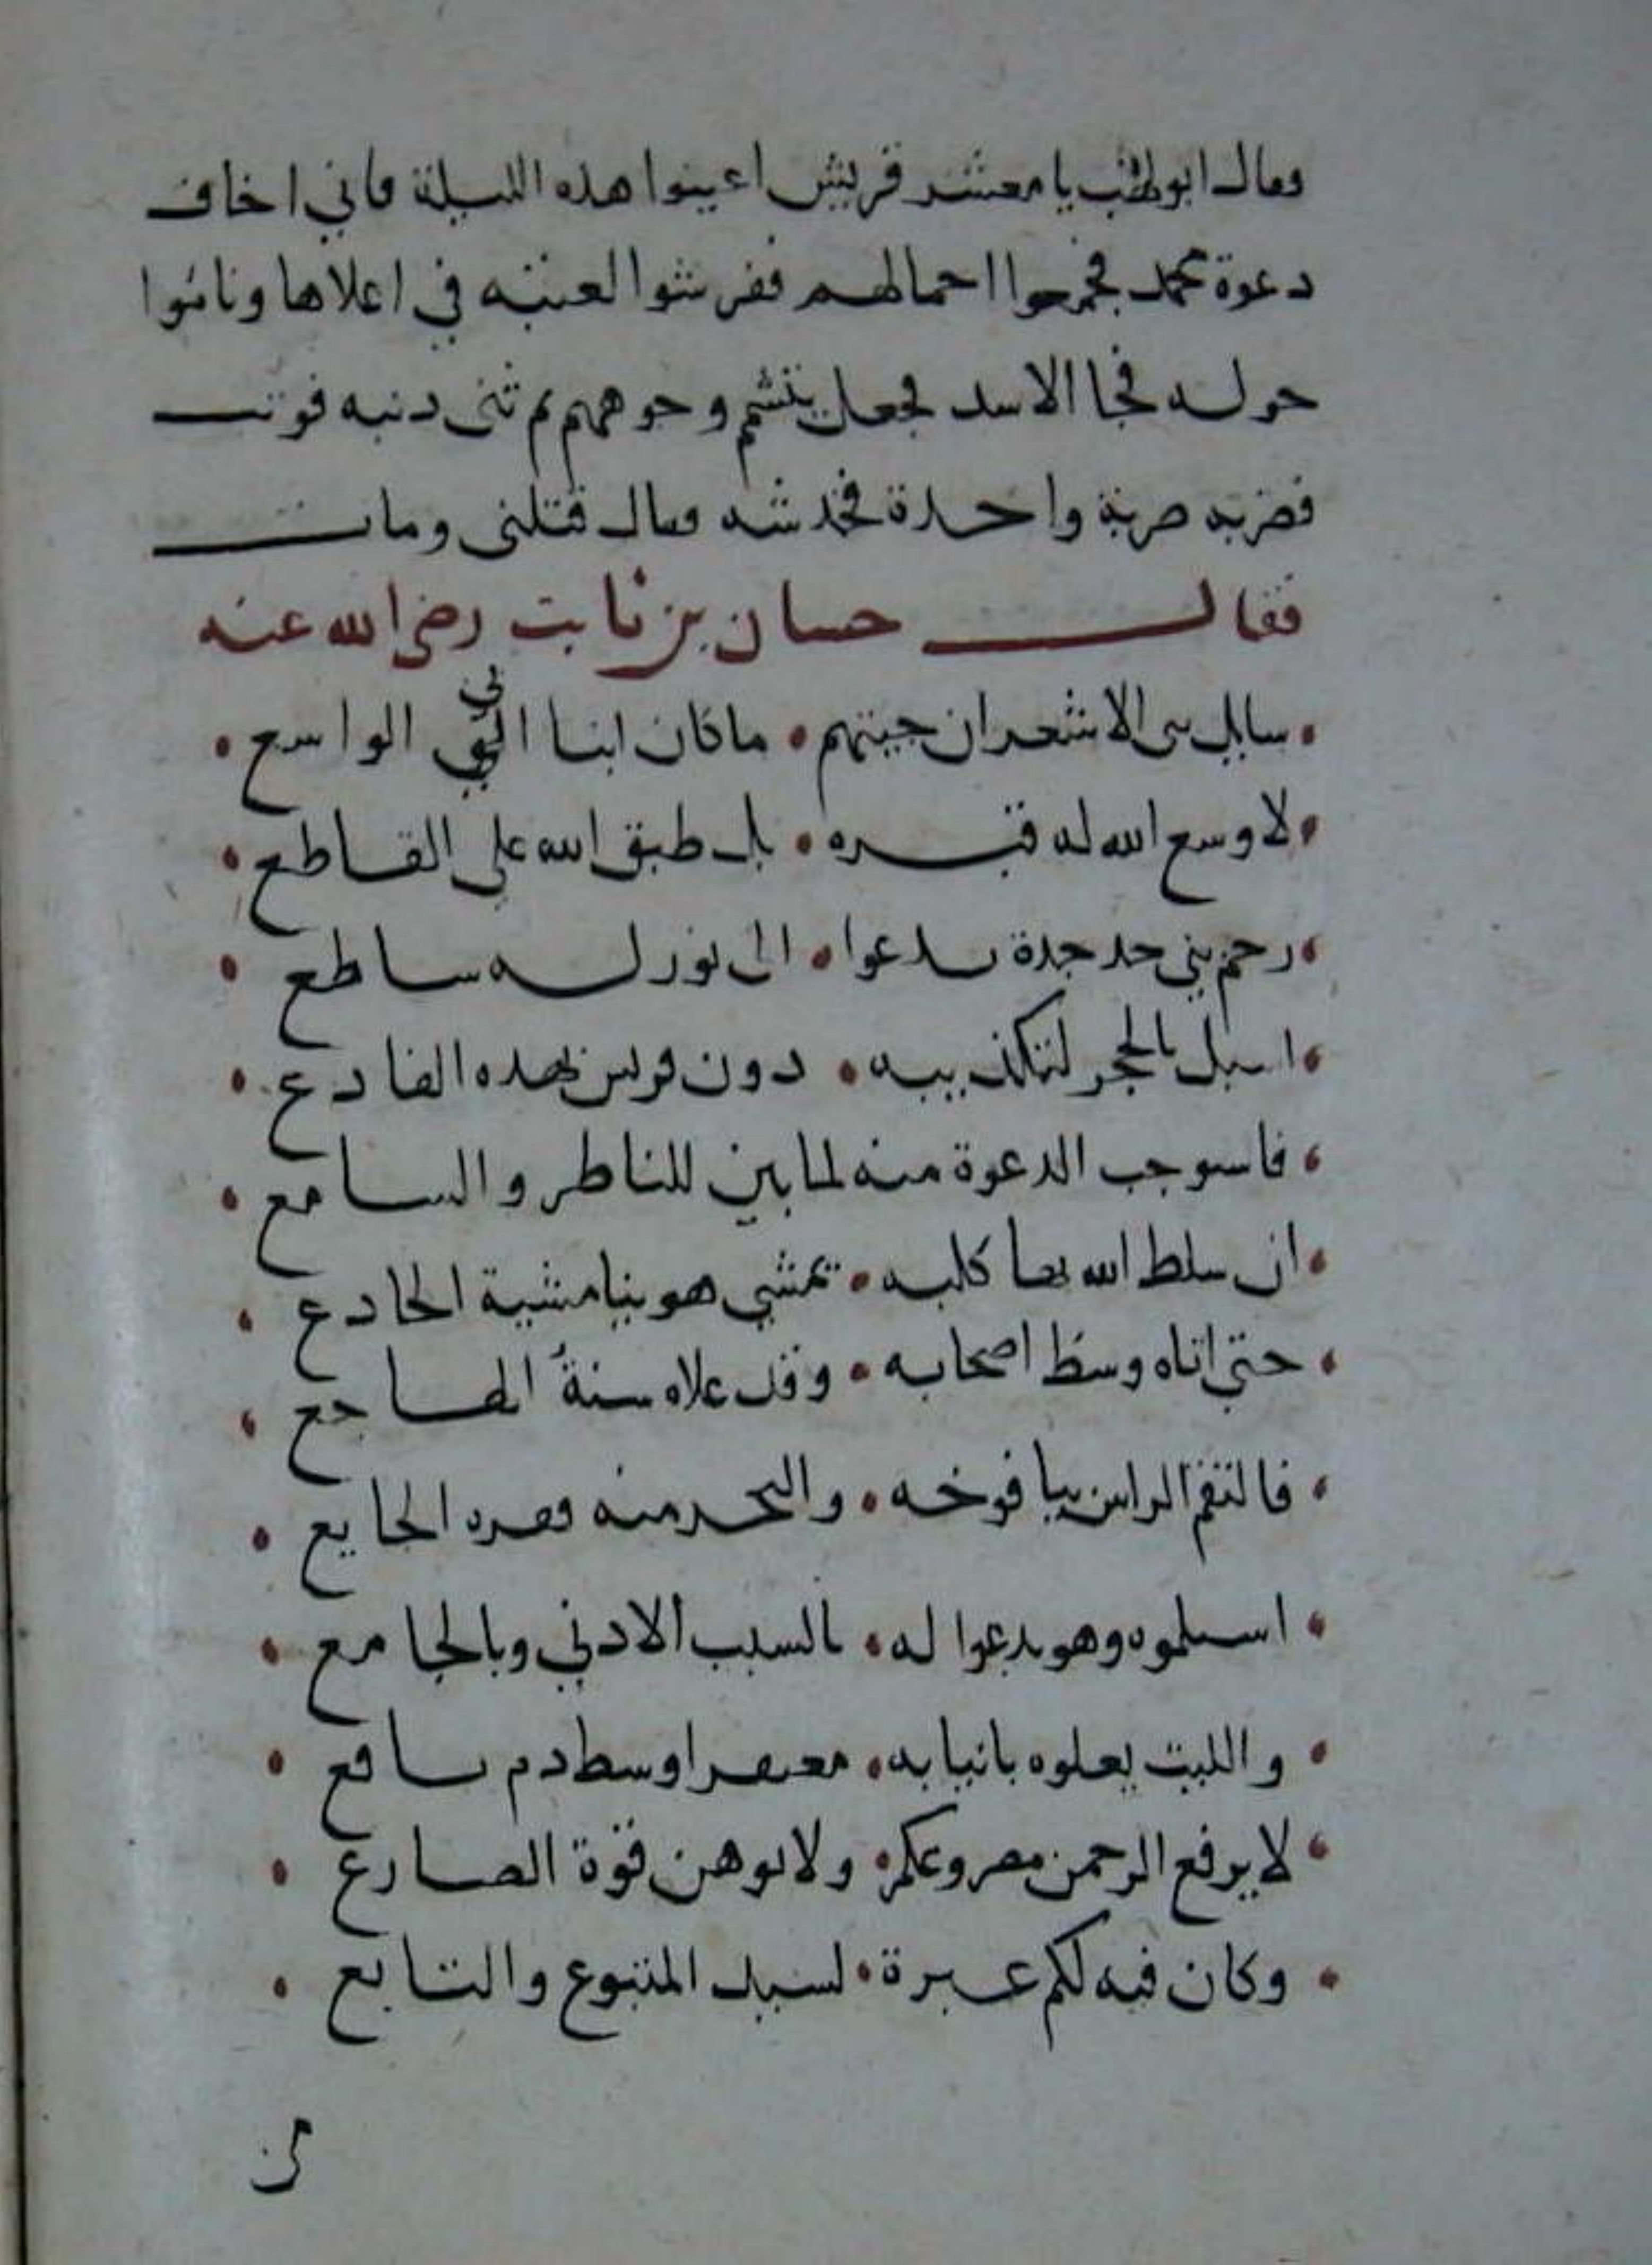 وقال ابو لهب يا معشر قريش اعينوا هذه الليلة فاني اخاف
دعوة محمد فجمعوا احمالهم ففرشوا لعتبه في اعلاها وناموا
حوله فجا الاسد فجعل يتشمم وجوههم ثم ثنى دنبه فوثب
فضربه ضربة واحدة فخدشه فقال قتلني ومات
فقال حسان بن ثابت رضي الله عنه
سايل بنى الاشعر ان جيتهم • ما كان ابنا ابي الواسع •
لا وسع الله له قبره • بل ضيق الله على القاطع •
رحم بني جده يدعوا • الى نور له ساطع •
اسبل بالحجر لتكذيبه • دون قريش نهده القادع •
فاسوجب الدعوة منه لما بين للناظر والسامع •
ان سلط الله بها كلبه • يمشي هوينا مشية الخادع •
حتى اتاه وسط اصحابه • وقد علاه سنة الهاجع •
فالتقم الراس بيافوخه • والنحر منه فغره الجايع •
اسلموه وهو يدعوا له • بالسبب الادني وبالجامع •
والليث يعلوه بانيابه • معفرا وسط دم ناقع •
لا يرفع الرحمن مصروعكم • ولا يوهن قوة الصارع •
وكان فيه لكم عبرة • لسيد المتبوع والتابع •
من